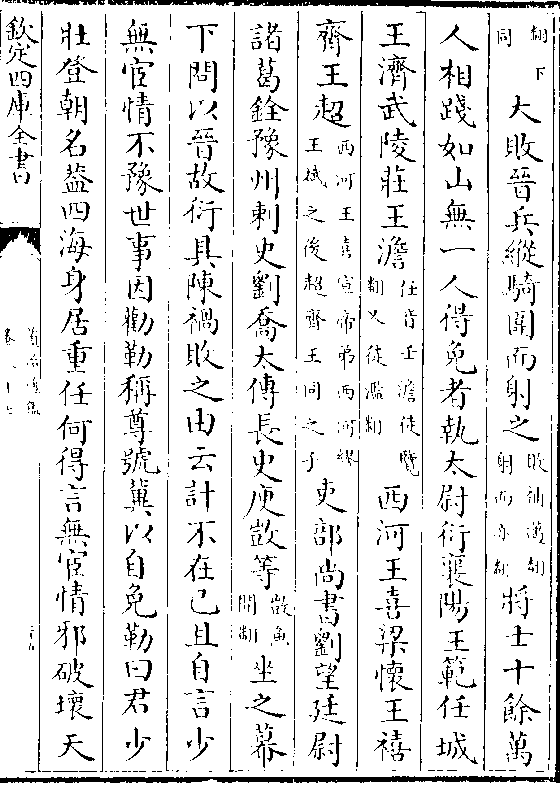 翻下同大敗晉兵縱騎圍而射之敗補邁翻射而亦翻將士十餘萬
人相踐如山無一人得免者執太尉衍襄陽王範任城
王濟武陵莊王澹任音壬澹徒覽翻又徒濫翻西河王喜梁懷王禧
齊王超西河王喜宣帝弟西河繆王斌之後超齊王同之子吏部尚書劉望廷尉
諸葛銓豫州刺史劉喬太傅長史庾敳等敳魚開翻坐之幕
下問以晉故衍具陳禍敗之由云計不在己且自言少
無宦情不豫世事因勸勒稱尊號冀以自免勒曰君少
壯登朝名葢四海身居重任何得言無宦情邪破壞天
欽定四庫全書